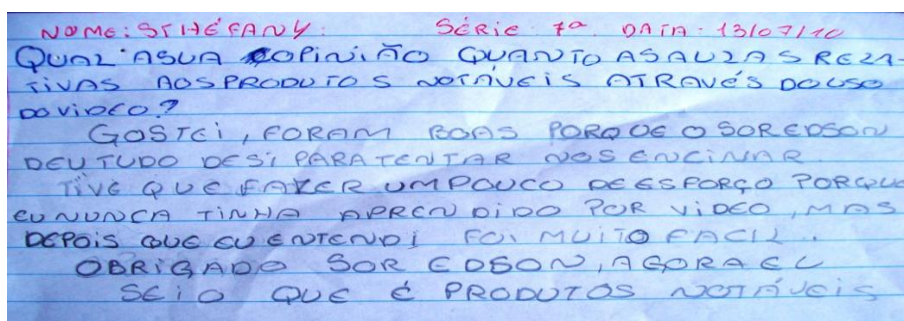 NOME: STHÉFANY. SÉRIE 7ª DATA: 13/07/10
QUAL A SUA OPINIÃO QUANTO AS AULAS RELA-
TIVAS AOS PRODUTOS NOTÁVEIS ATRAVÉS DO USO
DO VIDEO?
GOSTEI, FORAM BOAS PORQUE O SOR EDSON
DEU TUDO DE SI PARA TENTAR NOS ENCINAR.
TIVE QUE FAZER UM POUCO DE ESFORÇO PORQUE
EU NUNCA TINHA APRENDIDO POR VIDEO, MAS
DEPOIS QUE EU ENTENDI FOI MUITO FACIL.
OBRIGADO SOR EDSON, AGORA EU
SEI O QUE É PRODUTOS NOTÁVEIS